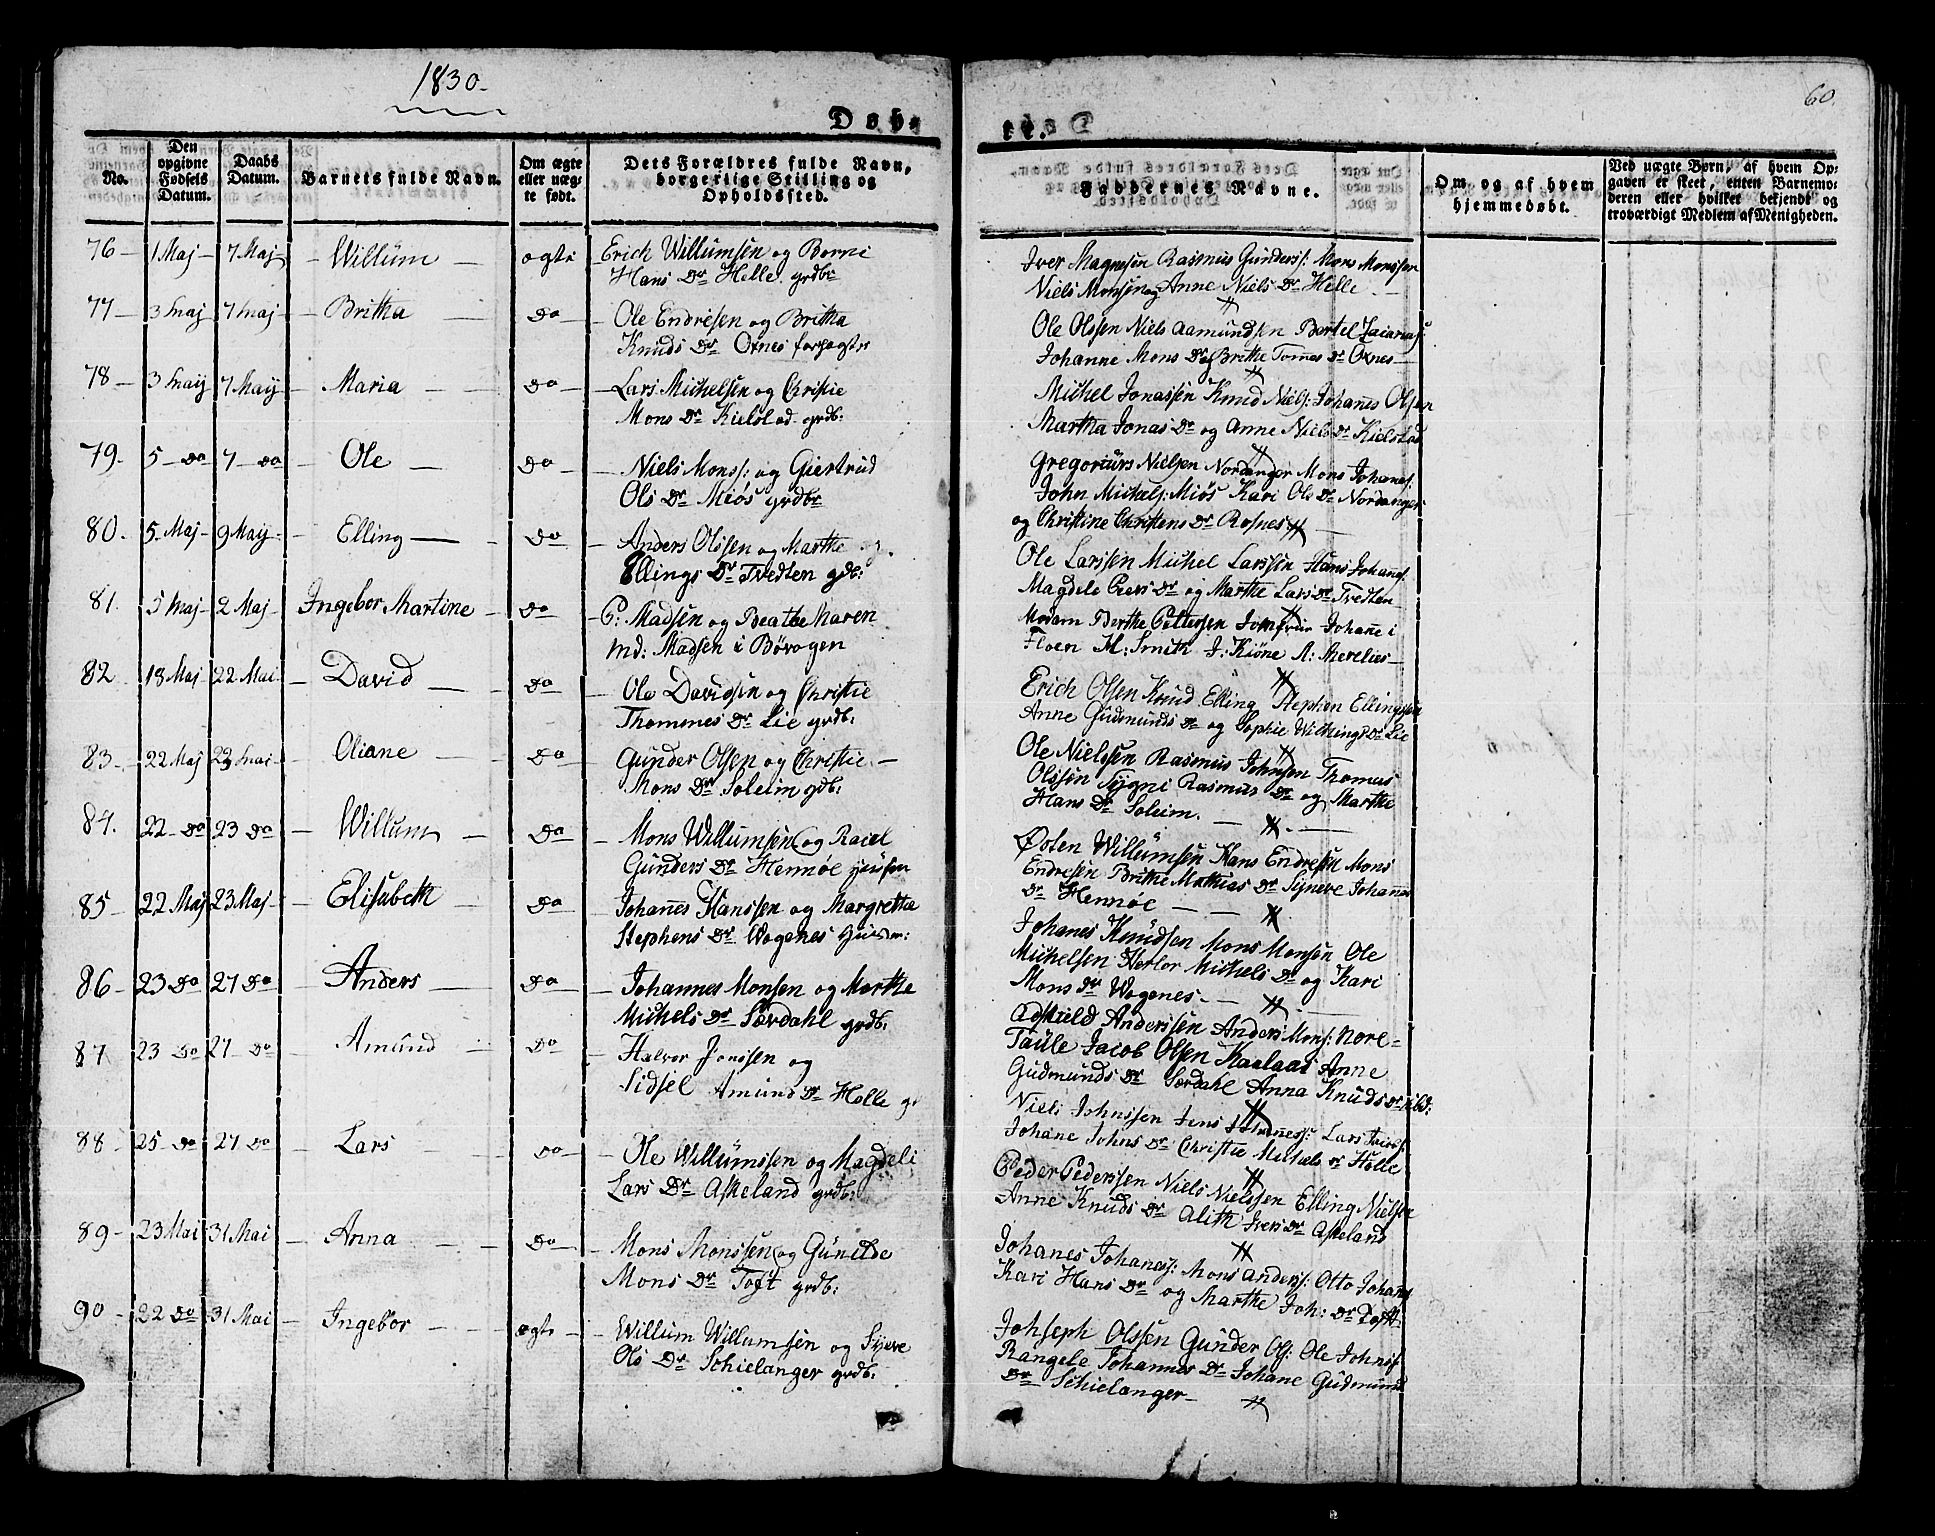 1830.
60.
Døb-
te.
No.
Den opgivne Fødsels Datum.
Daabs Datum.
Barnets fulde Navn.
Om ægte eller uægte født.
Dets Forældres fulde Navn, borgerlige Stilling og Opholdssted.
Faddernes Navne.
Om og af hvem hjemmedøbt.
Ved uægte Børn, af hvem Opgaven er skeet, enten Barnemoderen eller hvilket bekjendt og troværdigt Medlem af Menigheden.
76 – 1 Maj – 7 Maj – Willum – ægte
Erich Willumsen og Borni
Hans Dr Helle. grdb:
Iver Magnesen Rasmus Gunders: Mons Monssen
Niels Monsen og Anne Niels Dr Helle
77 – 3 maj 7 maj – Britha – Do
Ole Endresen og Britha
Knuds Dr Oxnes forpagter
Ole Olssen Niels Aamundsen Bertel Zacarias:
Johanne Mons Dr og Brithe Tomas Dr Oxnes
78 – 3 maij 7 Maij – Maria – Do
Lars Michelsen og Christie
Mons Dr Kielstad grdb:
Michel Jonassen Knud Niels: Johanes Olsen
Martha Jonas Dr og Anne Niels Dr Kielstad
79. 5 – Do 7 – Do – Ole – Do
Niels Mons: og Giertrud
Ols Dr Miøs grdb:
Gregorius Nielsen Nordanger Mons Johans:
John Michels: Miøs Kari Ols Dr Nordanger
og Christine Christens Dr Rosnes
80. 5. Maj – 9 Maij – Elling – Do
Anders Olssen og Marthe
Ellings Dr Tvedten gdb:
Ole Larssen Michel Larssen Hans Johans:
Magdele Peers Dr og Marthe Lars Dr Tvedten
81. 5 maj – 2 Maj – Ingebor Martine – Do
P: Madsen og Beathe Maren
md: Madsen i Bøvogen
Madam Berthe Pettersen Jomfrue Johane i
Floen M: Smith J: Kiøne A:
82 18 Maj 22 Mai – David – Do
Ole Davidsen og Christie
Thommes Dr Lie grdb:
Erich Olsen Knud Elling Stephen Ellingsen
Anne Gudmunds Dr og Sophie Dr Lie
83. 22 Maj 23 mai – Oliane – Do
Gunder Olsen og Christie –
Mons Dr Soleim gdb:
Ole Nielssen Rasmus Johnsen Thomas
Olssen Sygni Rasmus Dr og Marthe
Hans Dr Soleim.
84. 22 – Do 23 Do – Willum – Do
Mons Willumsen og Raiel
Gunders Dr Hennøe
Østen Willumsen Hans Endresen Mons
Endresen Brithe Mathias Dr Signeve Johanes
Dr Hennøe
85 – 22 Maj 23 Maj – Elisabeth – Do
Johannes Hanssen og Margrethe
Stephens Dr Wogenes
Johanes Knudsen Mons Monsen Ole
Michelsen Herlor Michels Dr og Kari
Mons Dr Wogenes.
86 – 23 Do 27 Do – Anders – Do
Johannes Monsen og Marthe
Michels Dr Sørdahl grdb:
Adskield Anderssen Anders Mons: Nore-
Taule Jacob Olsen Kaalaas Anne
Gudmunds Dr Sørdahl Anna Knuds Dr ibd:
87 23 Do 27 Do – Amund – Do
Halvor Jonssen og
Sidsel Amund Dr Helle
Niels Johnssen Jens Johanes: Lars Jacobs:
Johane Johns Dr Christie Michels Dr Helle
88 – 25 Do 27 Do – Lars – Do
Ole Willumssen og Magdeli
Lars Dr Askeland grdb:
Peder Pederssen Niels Nielssen Elling Nielsen
Anne Knuds Dr Alith Ivers Dr Askeland
89 – 23 Mai 31 Mai – Anna – Do
Mons Monssen og Gunilde
Mons Dr Toft grdb:
Johanes Johanes: Mons Anders: Otto Johans
Kari Hans Dr og Marthe Joh: Dr Toft
90 – 22 Do 31 Mai – Ingebor – ægte
Willum Willumsen og Syneve
Ols Dr Schielanger grdb:
Johseph Olssen Gunder Ols: Ole Johns:
Rangele Johannes Dr Johane Gudmund
Dr Schielanger